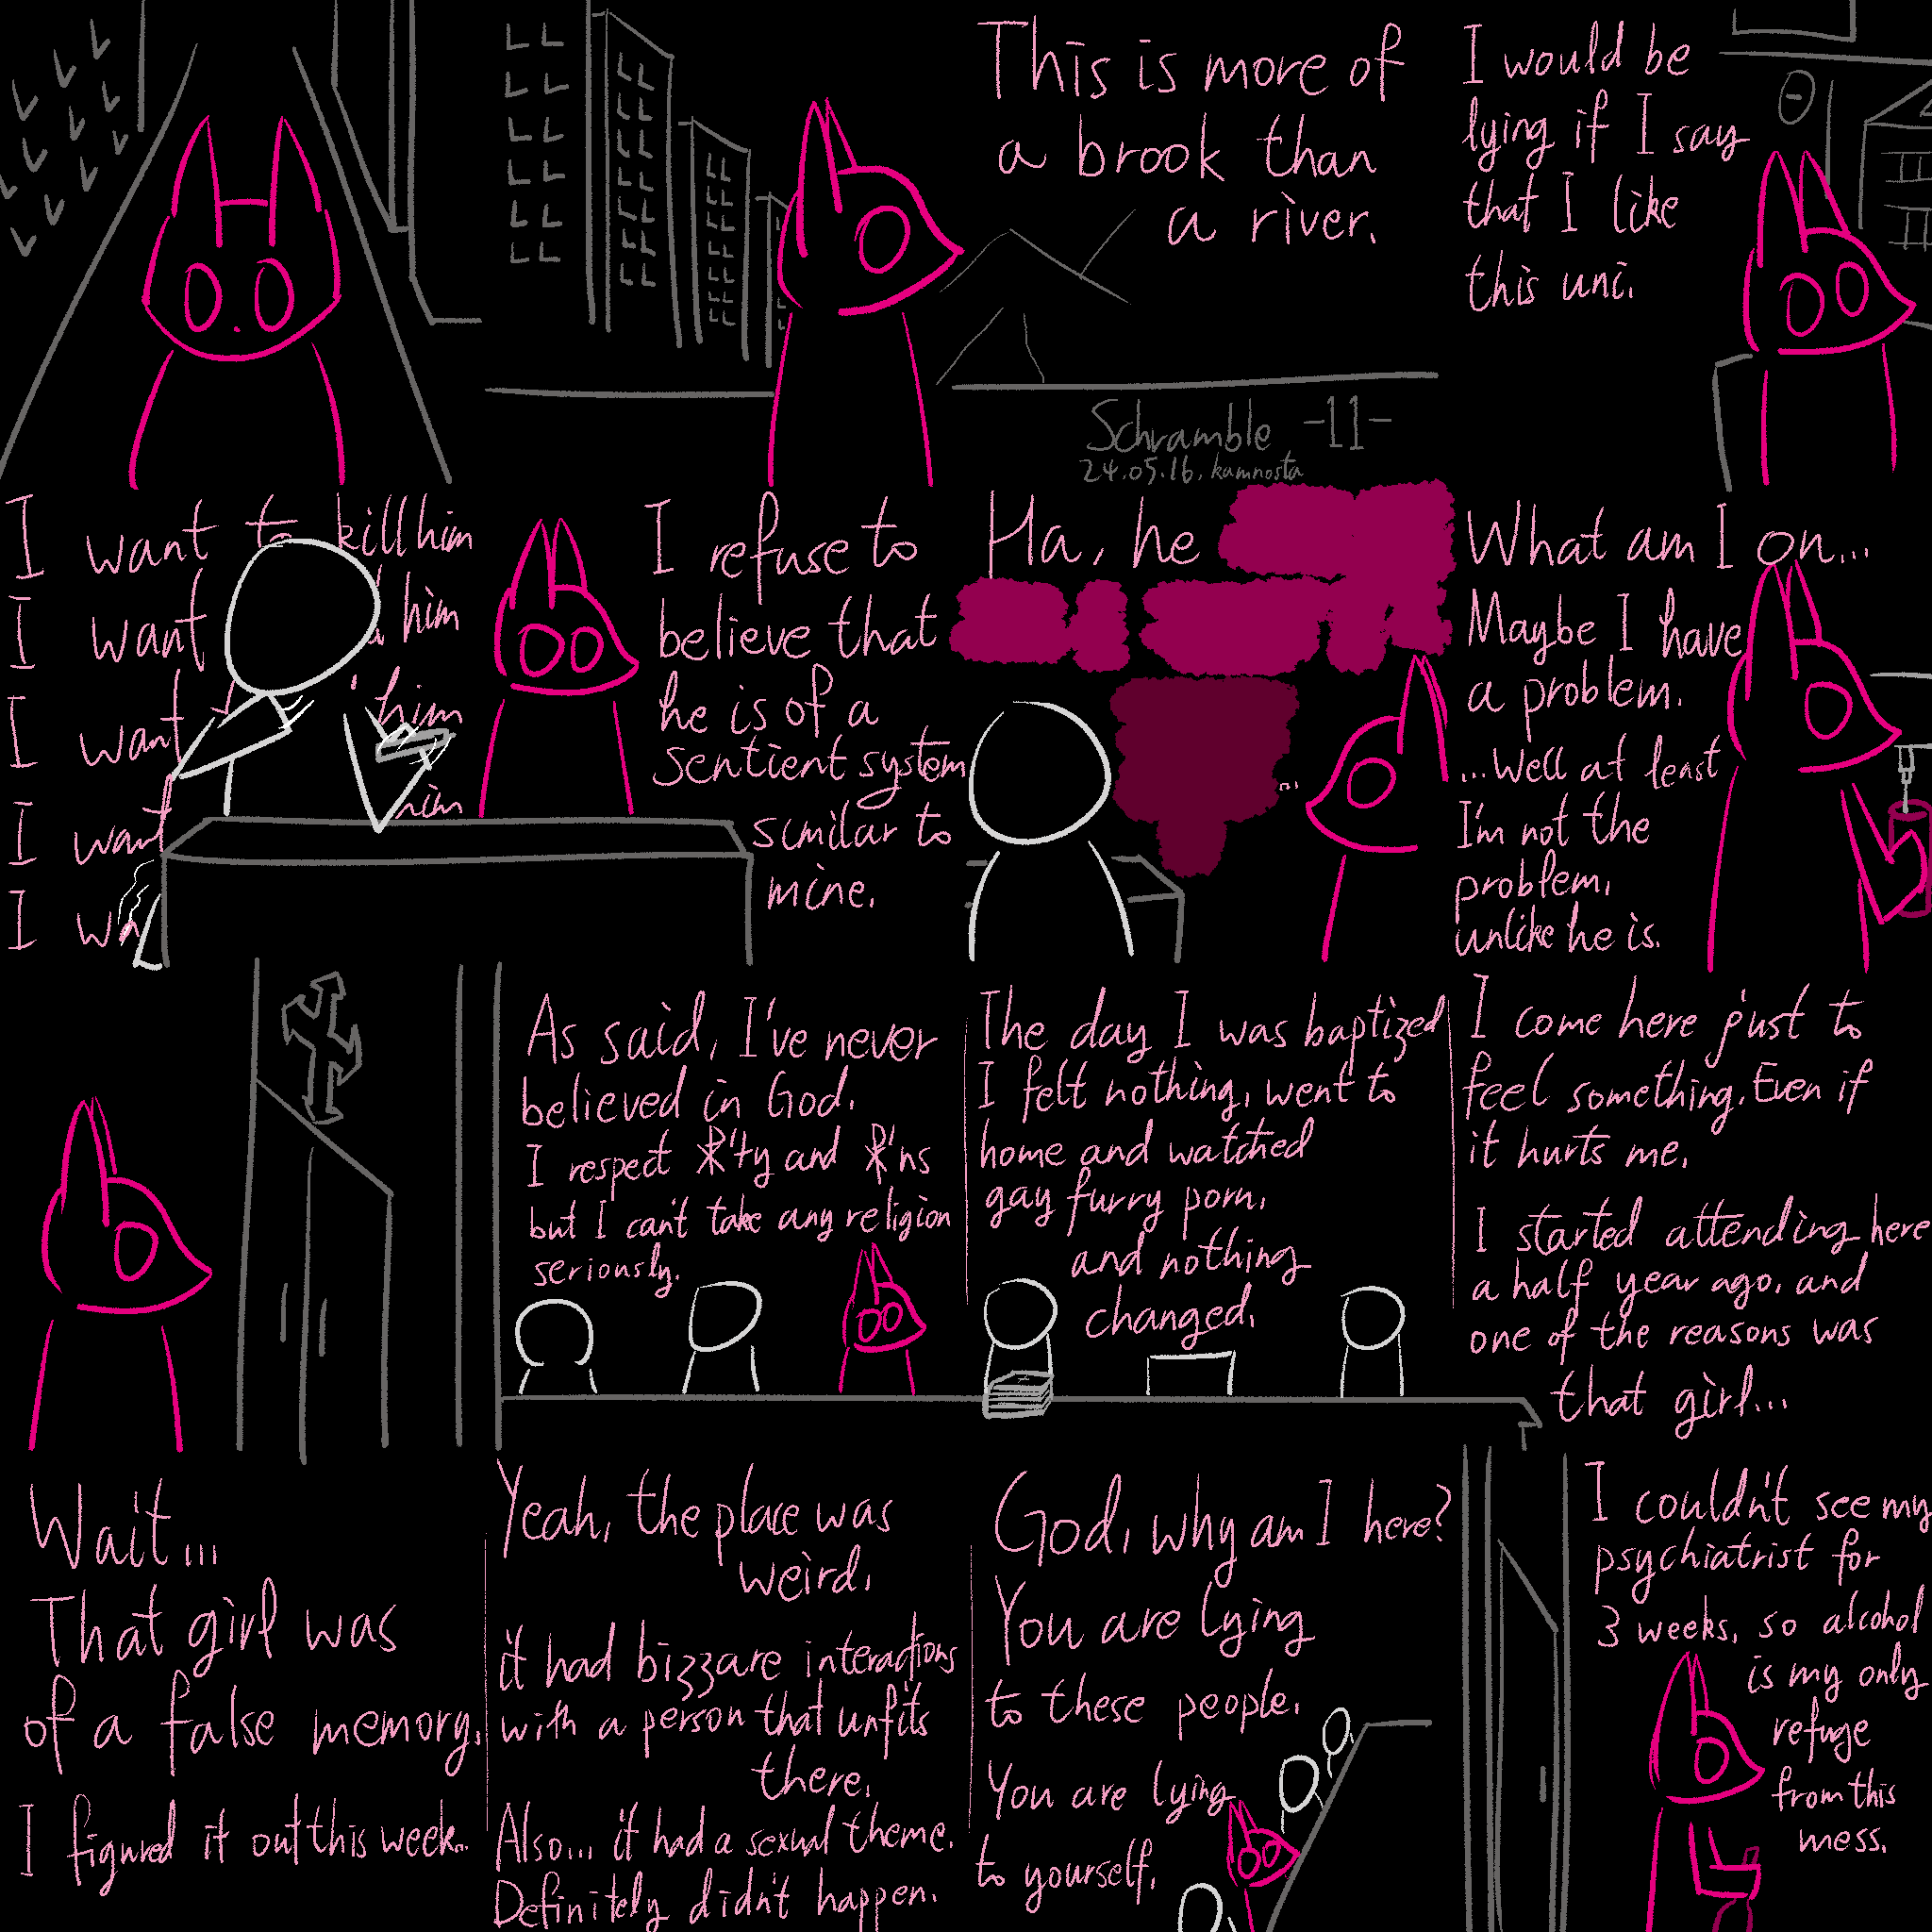 This is more of
a brook than
a river.
Schramble -11-
24.05.16. kamnosta
I would be
lying if I say
that I like
this uni.
I want to kill him
I want him
I want him
I want him
I wa
I refuse to
believe that
he is of a
sentient system
similar to
mine.
Ha, he
...
What am I on...
Maybe I have
a problem.
...Well at least
I'm not the
problem.
unlike he is.
As said, I've never
believed in God.
I respect ☧'ty and ☧'ns
but I can't take any religion
seriously.
The day I was baptized
I felt nothing, went to
home and watched
gay furry porn.
and nothing
changed.
I come here just to
feel something. Even if
it hurts me.
I started attending here
a half year ago, and
one of the reasons was
that girl...
Wait...
That girl was
of a false memory.
I figured it out this week..
Yeah, the place was
weird.
it had bizzare interactions
with a person that unfits
there.
Also... it had a sexual theme.
Definitely didn't happen.
God, why am I here?
You are lying
to these people.
You are lying
to yourself.
I couldn't see my
psychiatrist for
3 weeks, so alcohol
is my only
refuge
from this
mess.